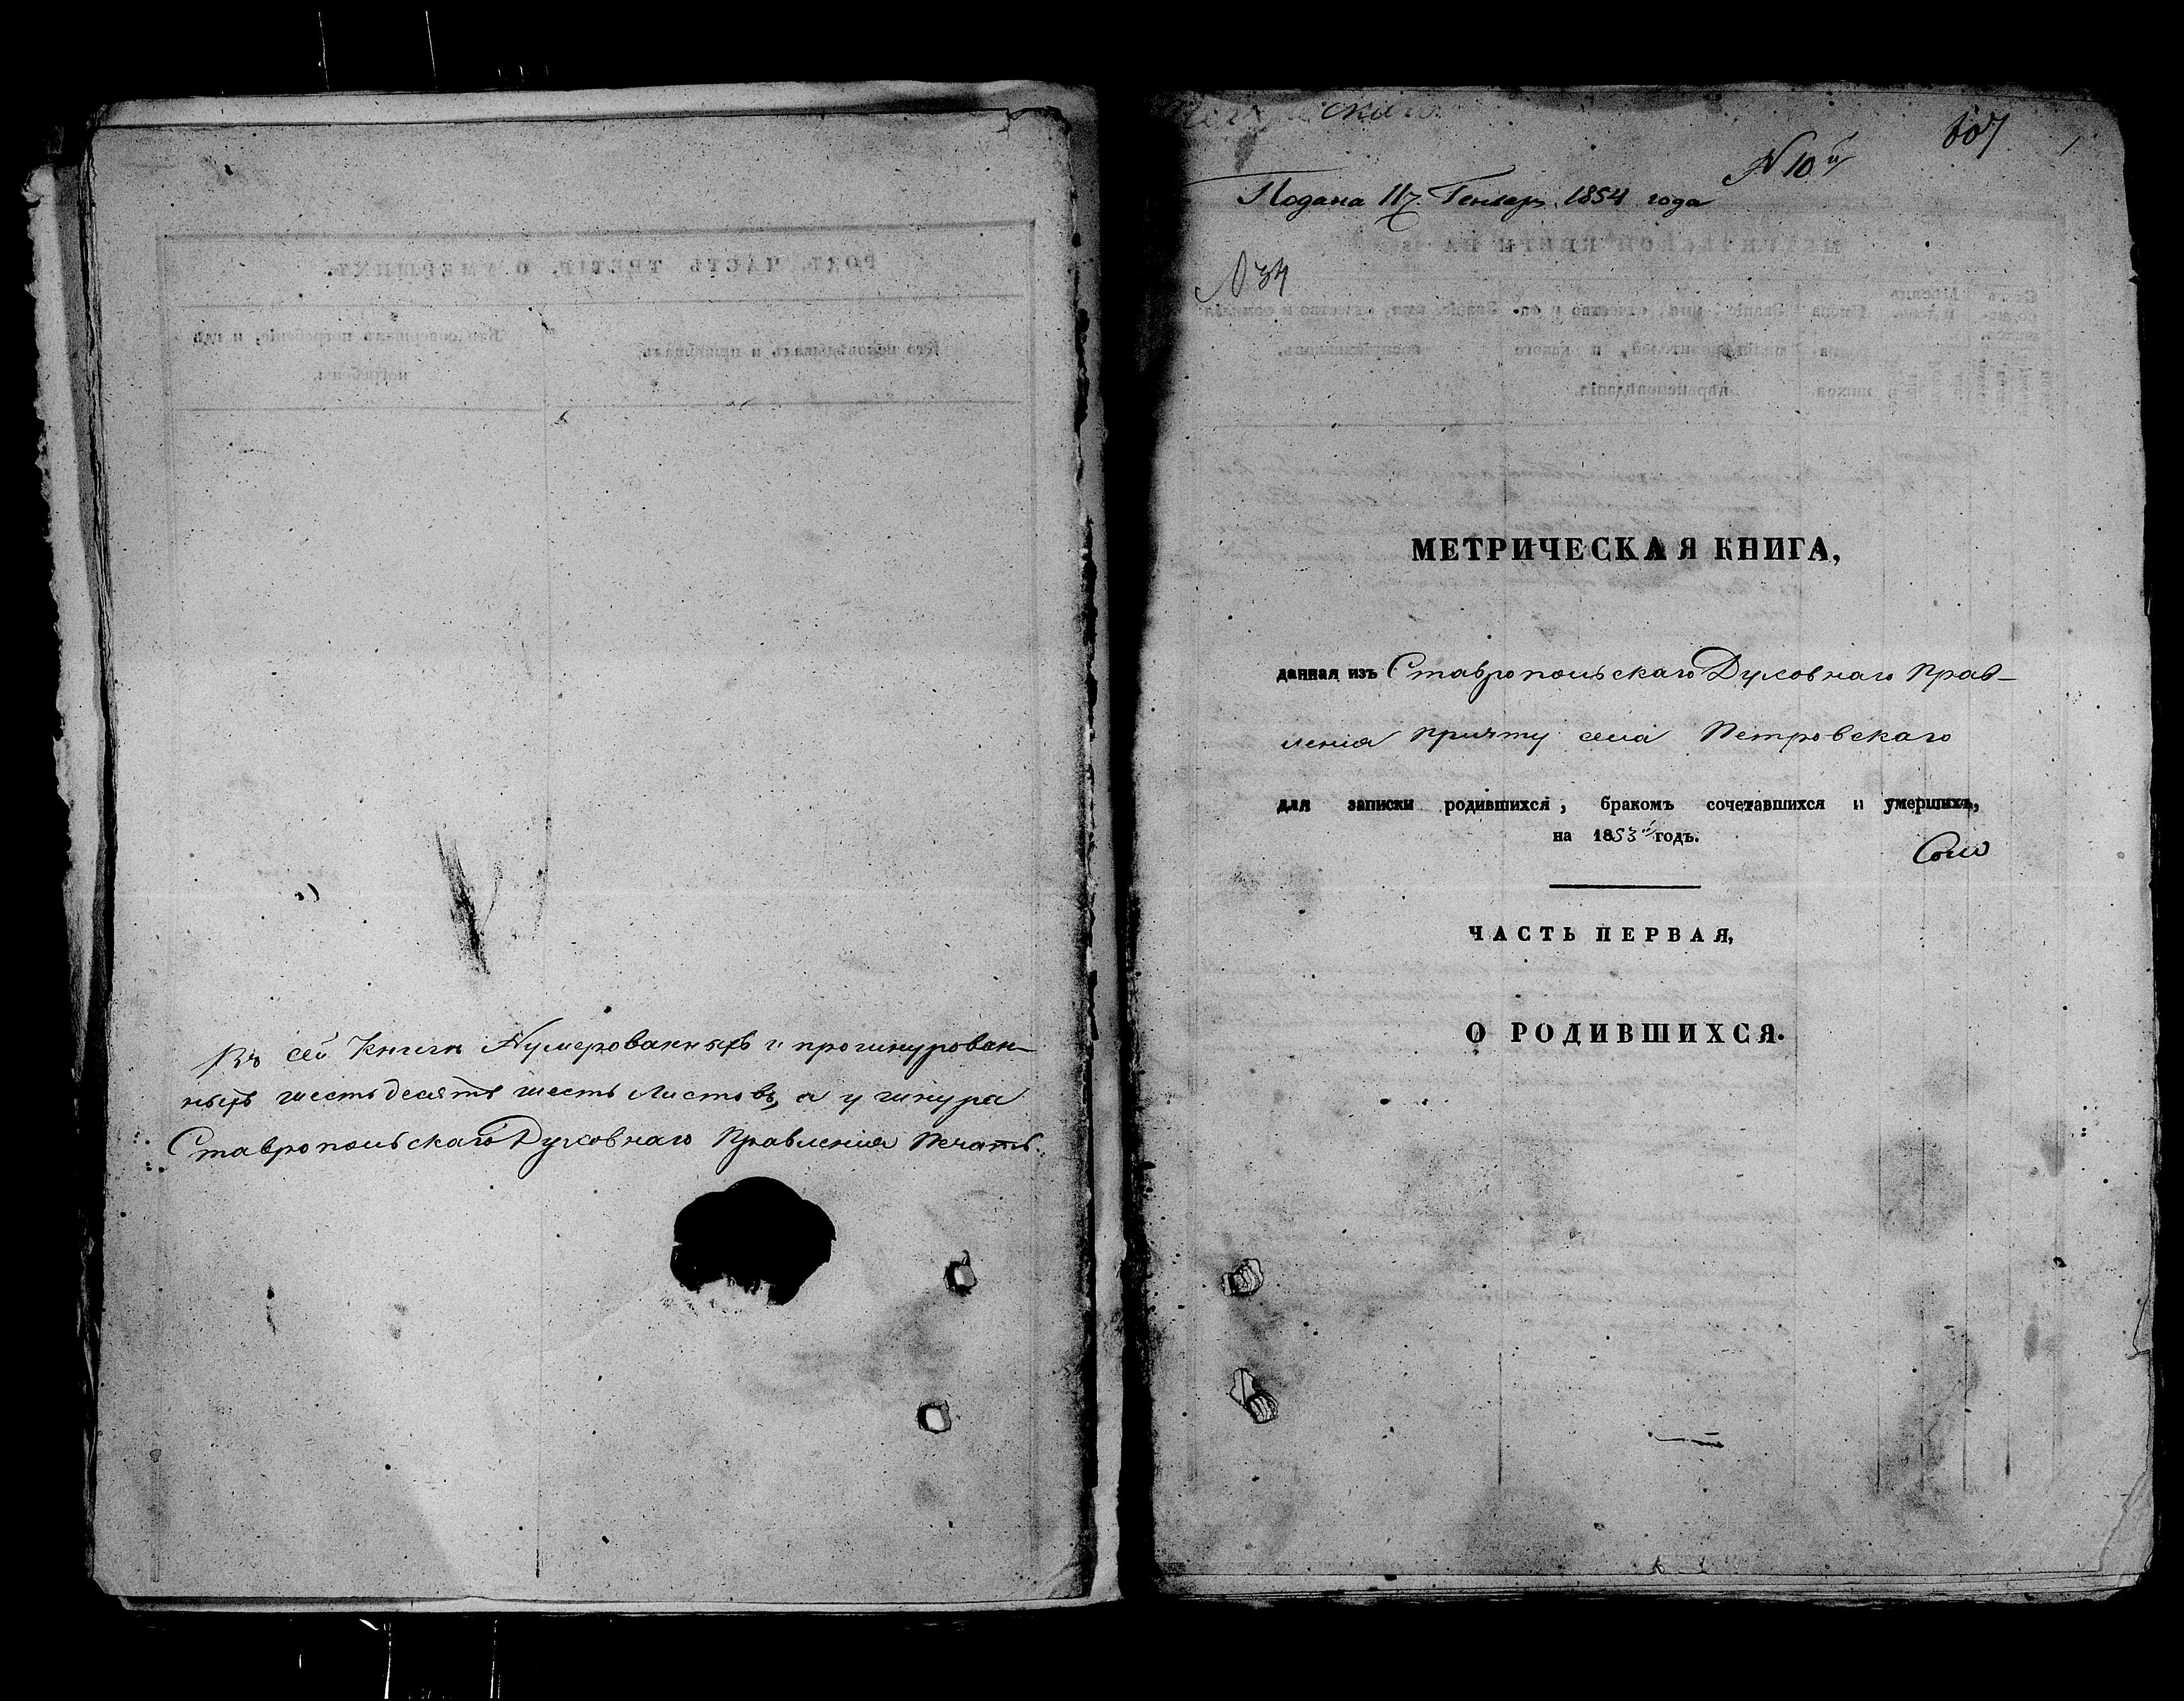 Въ сей Книгѣ Нумерованныхъ и прошнурован-
ныхъ шестьдесятъ шесть Листовъ, а у шнура
Ставропольскаго Духовнаго Правленія Печать.
N 10й
Подана 17. Генваря. 1854 года
N 34
МЕТРИЧЕСКАЯ КНИГА,
данная изъ Ставропольскаго Духовнаго Прав-
ленія причту села Петровскаго
для записки родившихся, бракомъ сочетавшихся и умершихъ,
на 1853й годъ.
ЧАСТЬ ПЕРВАЯ,
О РОДИВШИХСЯ.